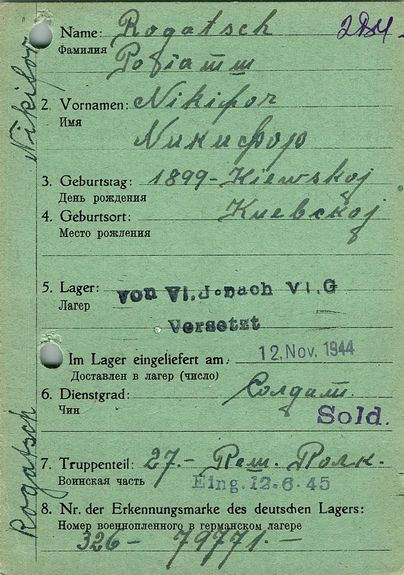 Nikifor
Rogatsch
1. Name: Rogatsch
Фамилия
2. Vornamen: Nikifor
Имя Никифор
3. Geburtstag: 1899 - Kiewskoj
День рождения
4. Geburtsort: Киевской
Место рождения
5. Lager: von VI.J. nach VI.G
Лагер
Versetzt
Im Lager eingeliefert am: 12. Nov. 1944
Доставлен в лагер (число)
6. Dienstgrad: Солдат.
Чин
Sold.
7. Truppenteil: 27.- Полк.
Воинская часть Eing. 12.6.45
8. Nr. der Erkennungsmarke des deutschen Lagers:
Номер военнопленного в германском лагере
326 - 79771.-